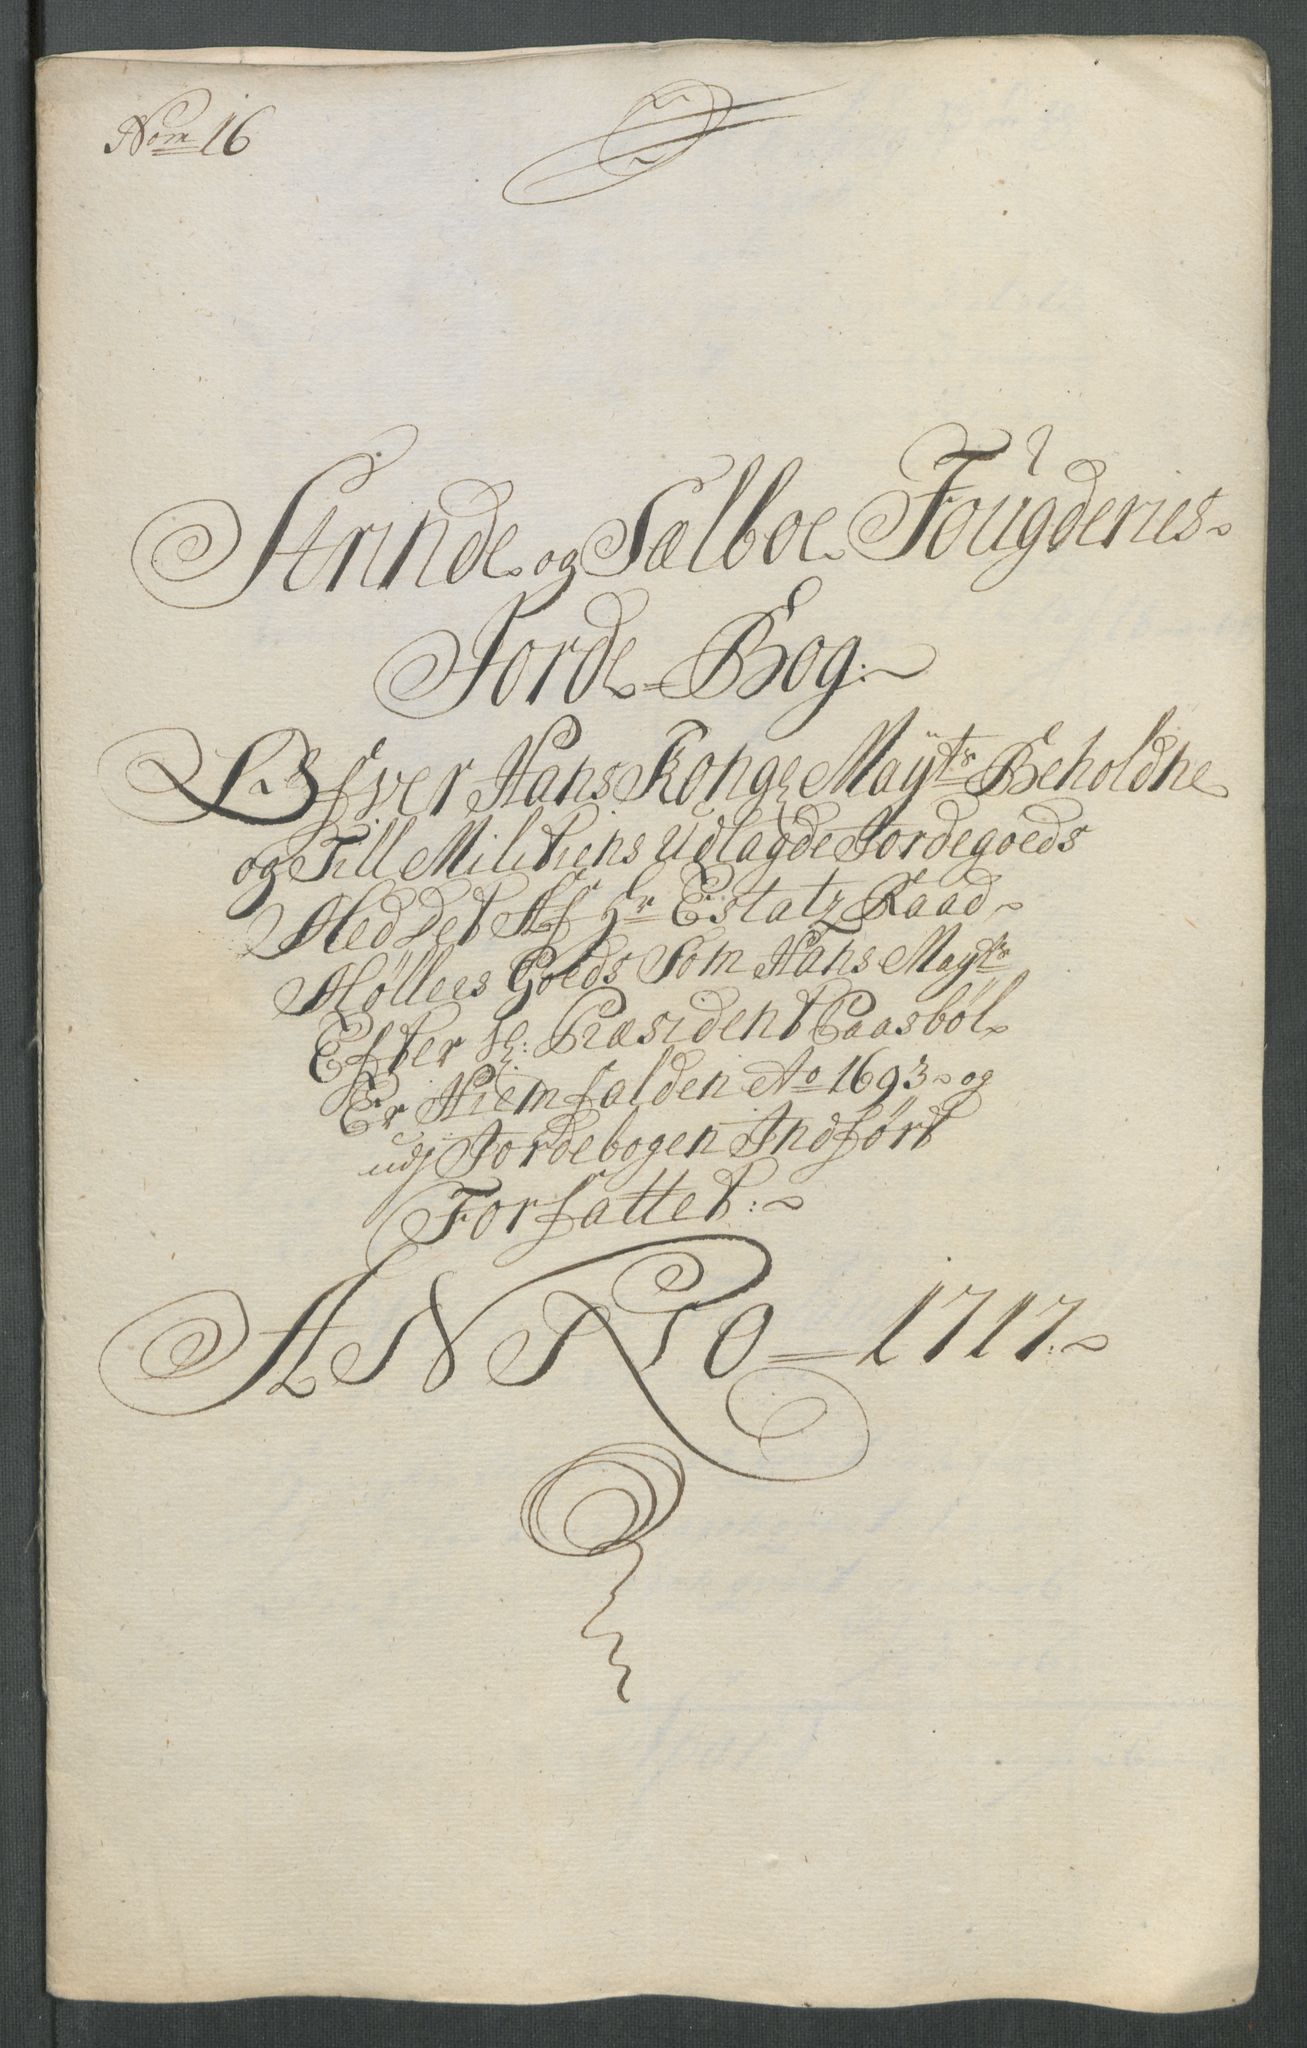 Nom 16
Strinde og Sælboe Fougderies
Jorde-Bog:
Ofver Hans Kong: Mayts Beholdne
og Till Militiens Udlagde Jordegoeds
Med Det Af Hr Estatz Raad
Møllers Goeds Som Hans Mayts
Efter Sl: Præsident Paasböl
Er Hiemfalden Ao 1693 og
udj Jordebogen Indført
Forfattet:
ANNO 1717.